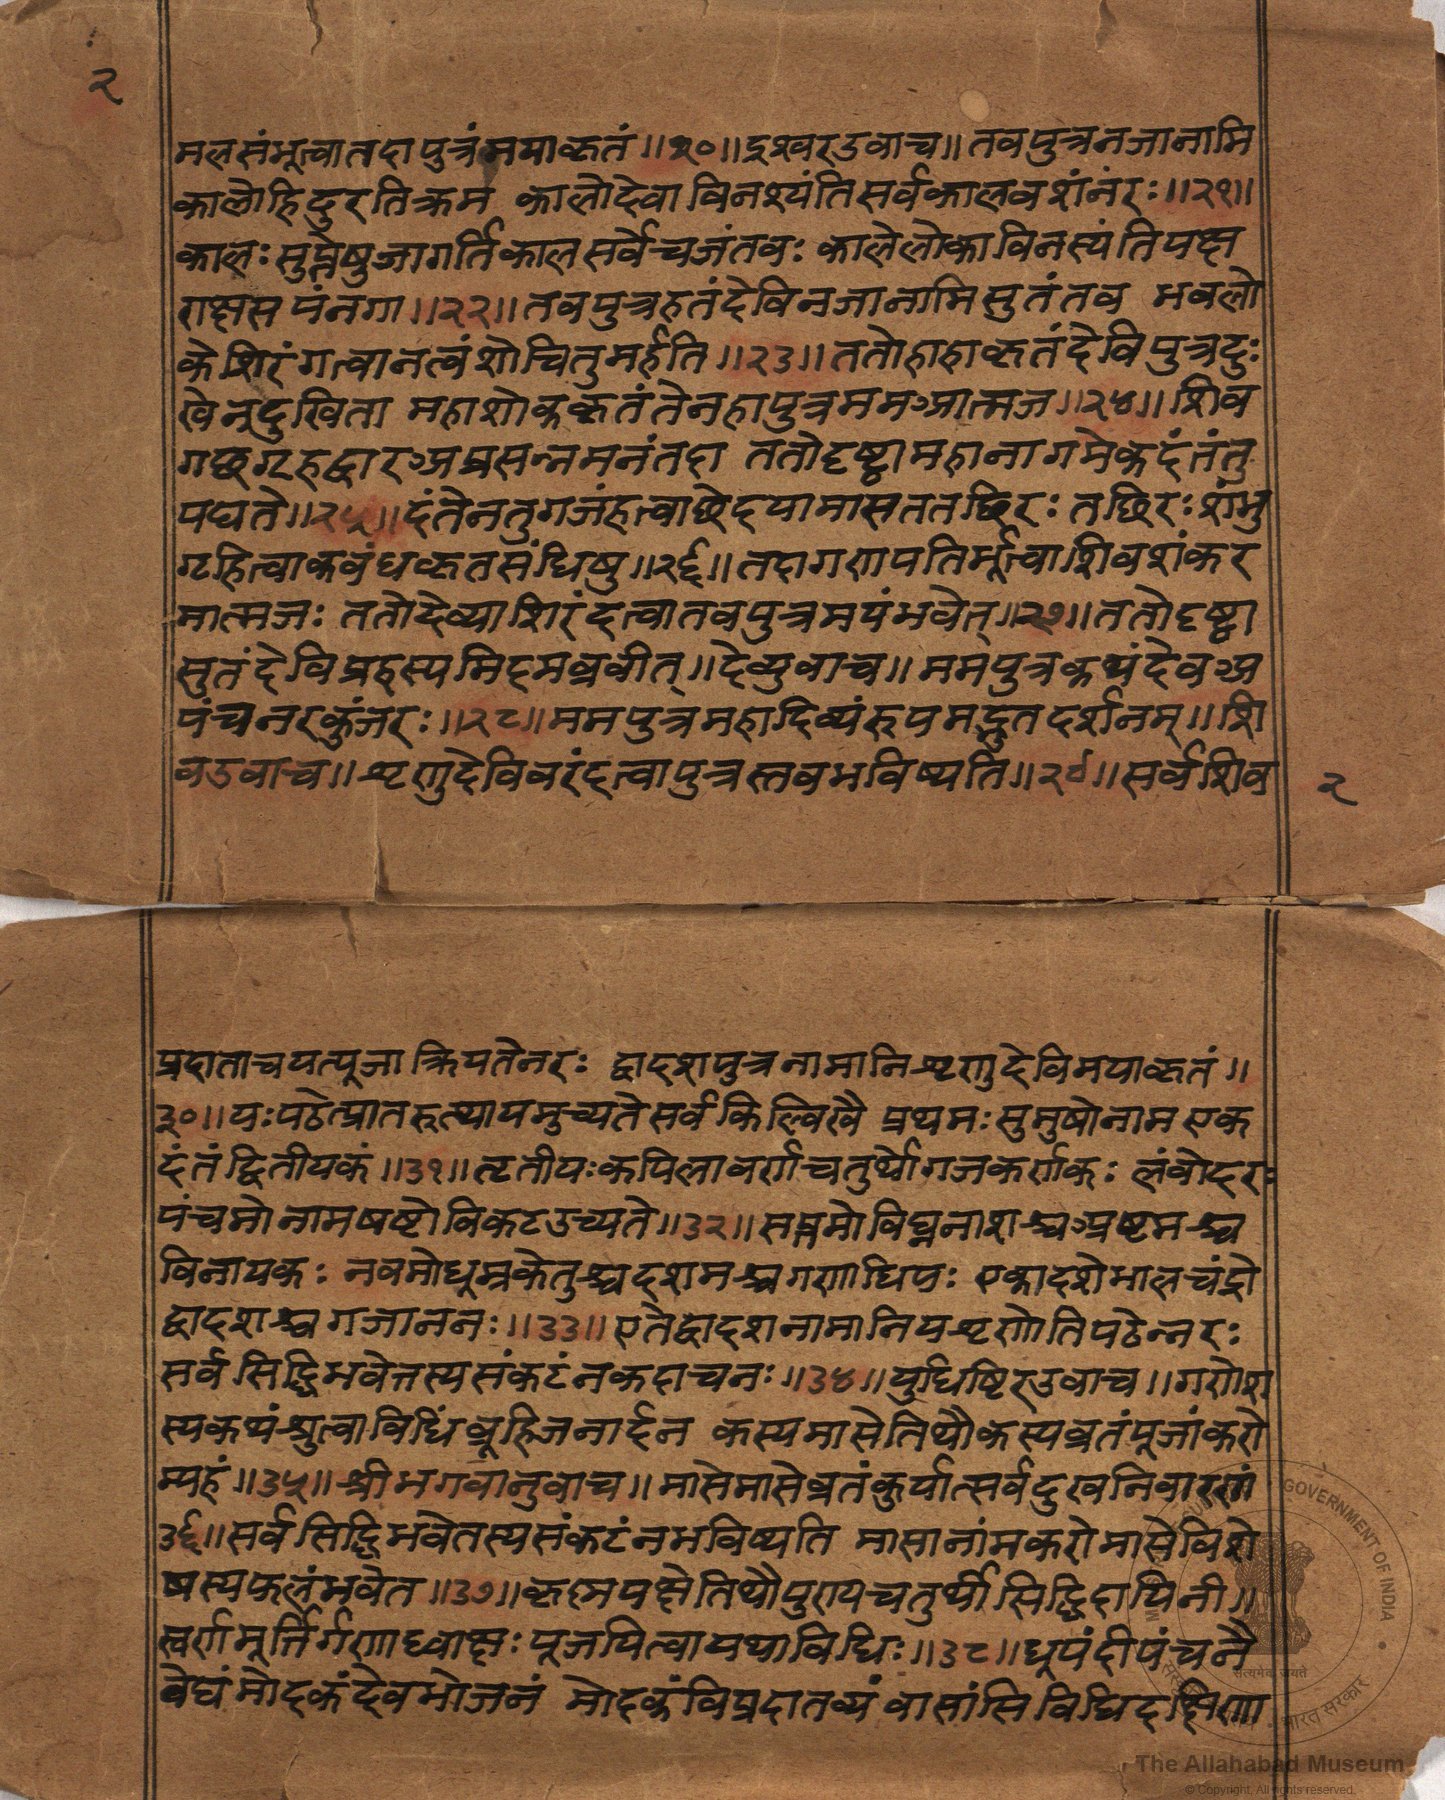 २
मलसंभूत्वातदापुत्रंमयाकृतं॥२०॥ईश्वरउवाच॥तवपुत्रनजानामि
कालोहिदुरतिक्रम कालोदेवाविनश्यंतिसर्वकालवशंनरः॥२१॥
कालःसुप्तेषुजागर्तिकालसर्वेचजंतवः कालेलोकाविनस्यंतियक्ष
राक्षसपंनगा॥२२॥तवपुत्रहतंदेविनजानामिसुतंतव भवलो
केशिरंगत्वानत्वंशोचितुमर्हति॥२३॥ततोहाहाकृतंदेविपुत्रदुः
खेनदुखिता महाशोककृतंतेनहापुत्रममआत्मज॥२४॥शिव
गछगृहद्वारअप्रसन्नमनंतदा ततोदृष्ट्वामहानागमेकदंतंतु
पद्यते॥२५॥दंतेनतुगजंहत्वाछेदयामासततछिरः तछिरःशंभु
गृहित्वाकवंधकृतसंधिषु॥२६॥तदागणपतिर्भूत्वाशिवशंकर
मात्मजः ततोदेव्याशिरंदत्वातवपुत्रमयंभवेत्॥२७॥ततोदृष्ट्वा
सुतंदेविप्रहस्यमिदमब्रवीत्॥देव्युवाच॥ममपुत्रकथंदेवअ
पंचनरकुंजरः॥२८॥ममपुत्रमहादिव्यंरूपमद्भुतदर्शनम्॥शि
वउवाच॥शृणुदेविवरंदत्वापुत्रस्तवभविष्यति॥२९॥सर्वशिव
२
प्रदाताचयत्पूजाक्रियतेनरः द्वादशपुत्रनामानिशृणुदेविमयाकृतं॥
३०॥यःपठेत्प्रातरुत्थायमुच्यतेसर्वकिल्विखै प्रथमःसुमुषोनामएक
दंतंद्वितीयकं॥३१॥तृतीयःकपिलावर्णचतुर्थोगजकर्णकः लंवोदरः
पंचमोनामषष्टोविकटउच्यते॥३२॥सप्तमोविघ्ननाशश्चअष्टमश्च
विनायकः नवमोधूम्रकेतुश्चदशमश्चगणाधिपः एकादशेभालचंद्रो
द्वादशश्चगजाननः॥३३॥एतेद्वादशनामानियशृणोतिपठेन्नरः
सर्वसिद्धिभवेत्तस्यसंकटंनकदाचनः॥३४॥युधिष्टिरउवाच॥गणेश
स्यकथंश्रुत्वाविधिंव्रूहिजनार्दन कस्यमासेतिथौकस्यव्रतंपूजांकरो
म्यहं॥३५॥श्रीभगवानुवाच॥मासेमासेव्रतंकुर्यात्सर्वदुखनिवारणं
३६॥सर्वसिद्धिभवेतस्यसंकटंनभविष्यति मासानांमकरोमासेविशे
षस्यफलंभवेत॥३७॥कृष्णपक्षेतिथौपुण्यचतुर्थीसिद्धिदायिनी॥
स्वर्णमूर्त्तिर्गणाध्याक्षः पूजयित्वायथाविधिः॥३८॥धूपंदीपंचनै
वेद्यंमोदकंदेवभोजनं मोदकंविप्रदातव्यंवासांसिविधिदक्षिणा
GOVERNMENT OF INDIA
सत्यमेव जयते
भारत सरकार
The Allahabad Museum
© Copyright, All rights reserved.